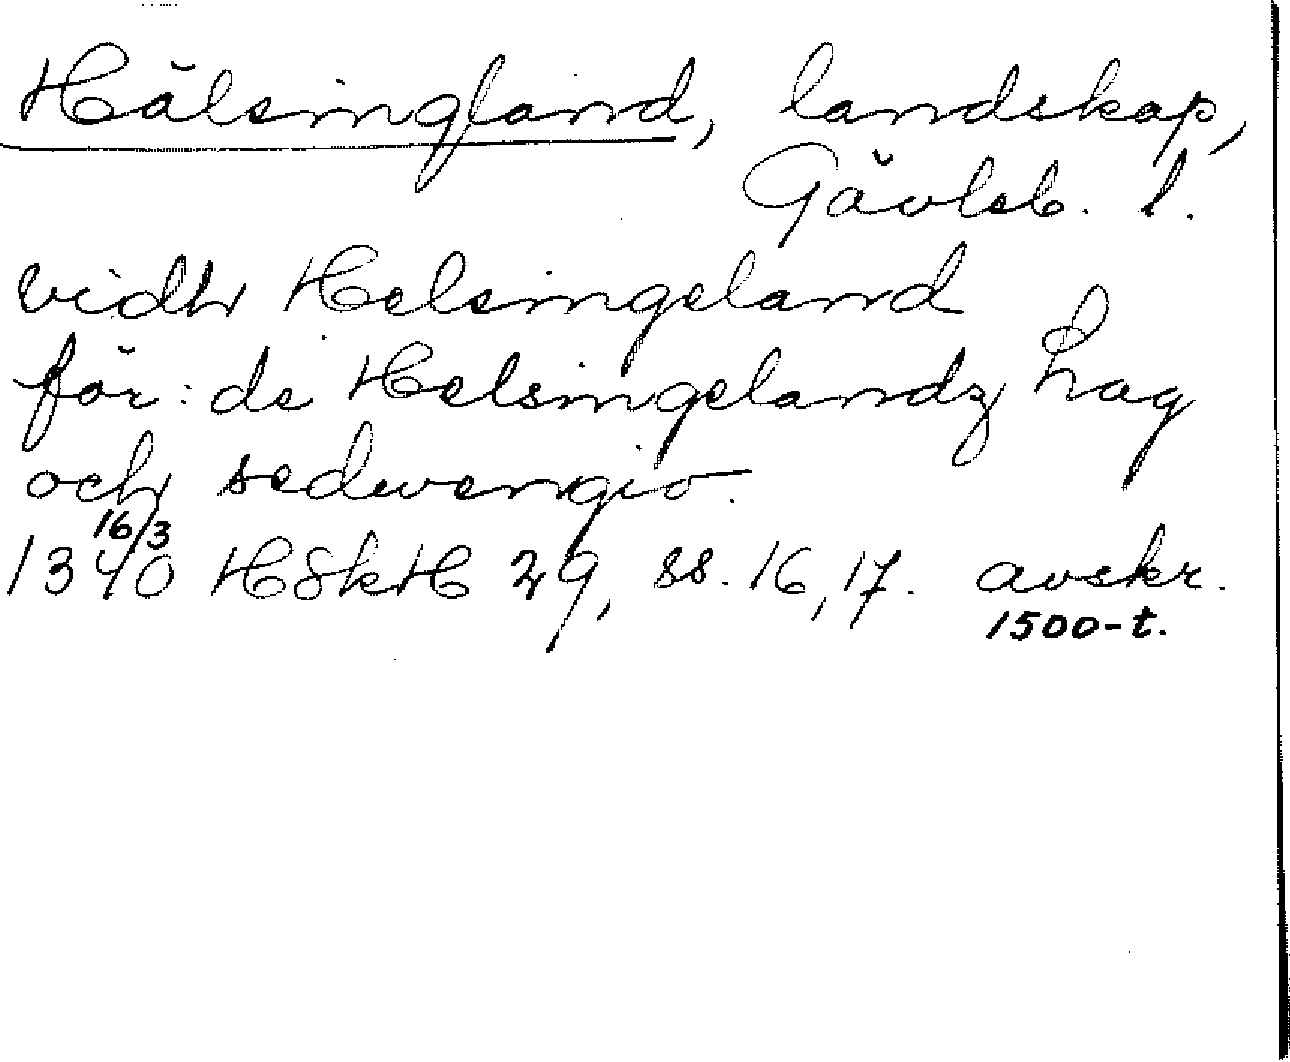 Hälsingland, landskap,
Gävleb. l.
vidh Helsingeland
för: de Helsingelandz Lag
och sedwengio.
1340 16/3 HSkH 29, ss. 16, 17. avskr.
1500-t.